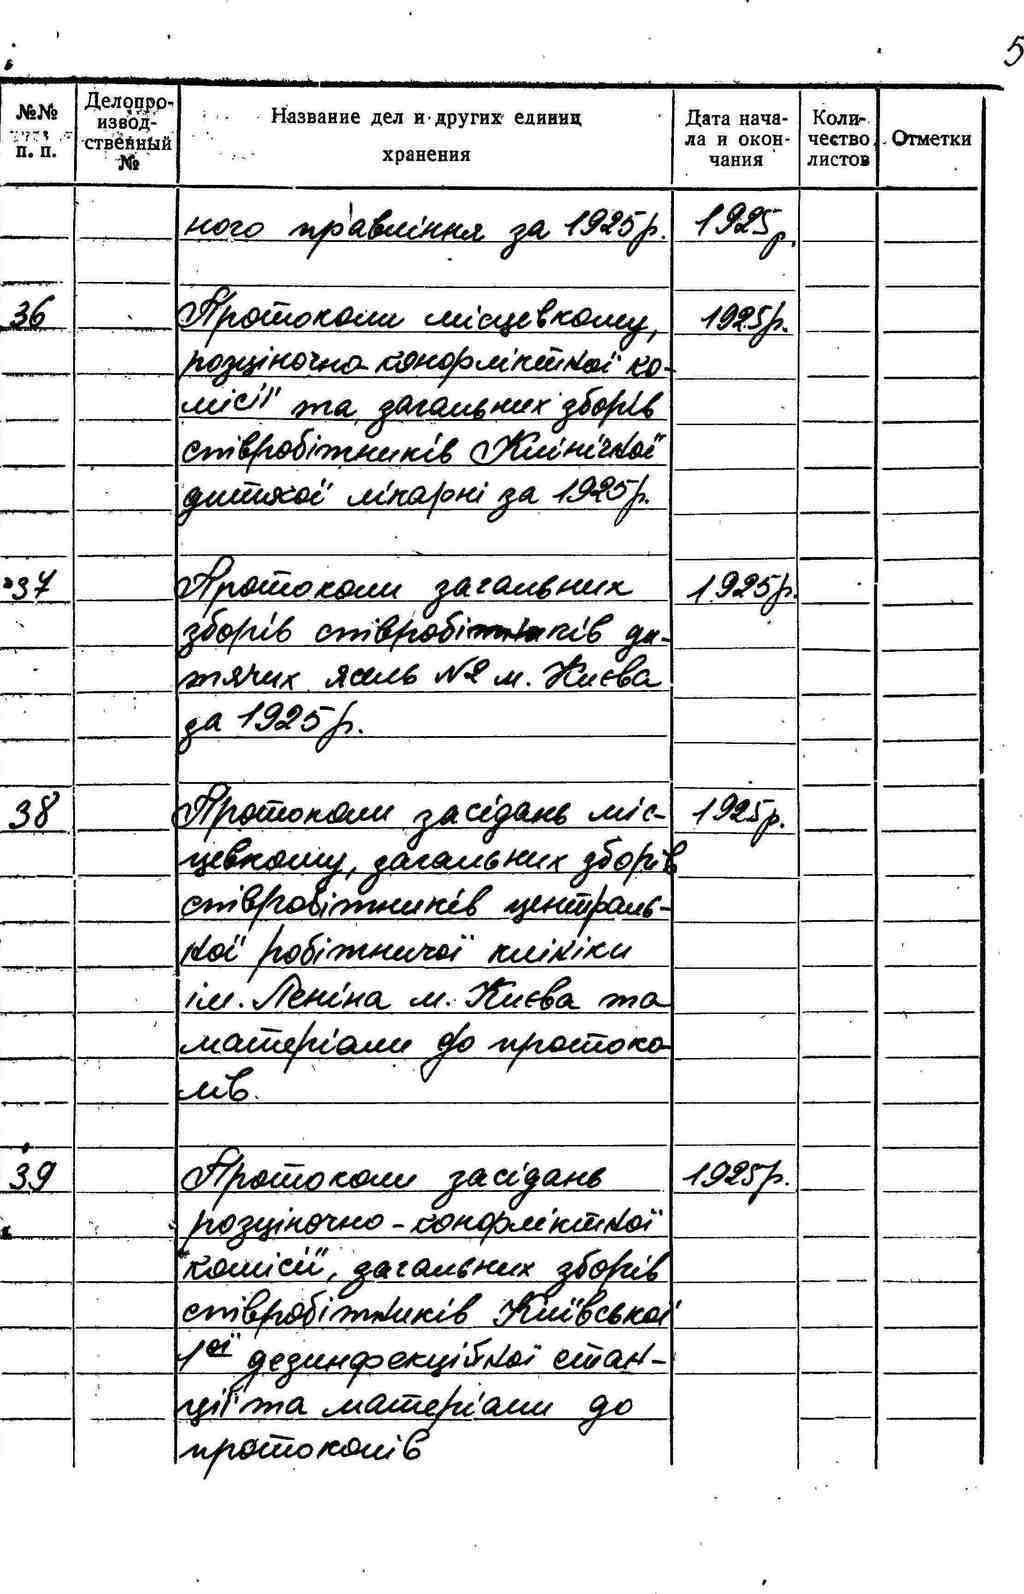 5
№№ п. п. Делопроизвод-ственный № Название дел и других единиц хранения Дата нача-ла и окон-чания Коли-чество листов Отметки
ного правління за 1925р. 1925р.
36 Протоколи місцевкому, 1925р.
розціночно-конфліктної ко-
місії та загальних зборів
співробітників Клінічної
дитячої лікарні за 1925р.
37 Протоколи загальних 1925р.
зборів співробітників ди-
тячих ясель №2 м. Києва
за 1925р.
38 Протоколи засідань міс- 1925р.
цевкому, загальних зборів
співробітників централь-
ної робітничої клініки
ім. Леніна м. Києва та
матеріали до протоко-
лів.
39 Протоколи засідань 1925р.
розціночно-конфліктної
комісії, загальних зборів
співробітників Київської
1ої дезинфекційної стан-
ції та матеріали до
протоколів